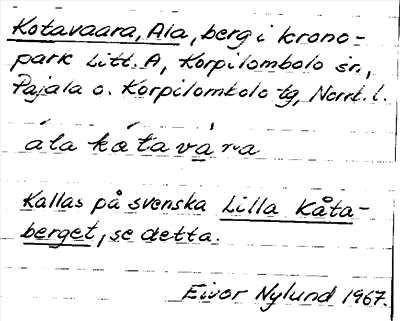 Kotavaara, Ala, berg i krono-
park Litt. A, Korpilombolo sn,
Pajala o. Korpilombolo tg, Norrb. l.
ála kátavàra
Kallas på svenska Lilla Kåta-
berget, se detta.
Eivor Nylund 1967.